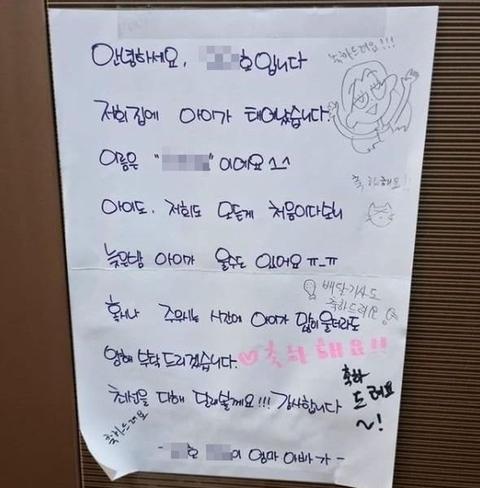 안녕하세요, 호입니다
축하드려요!!!
저희집에 아이가 태어났습니다.
이름은 " "이에요 ^_^
축하해요!
아이도, 저희도 모든게 처음이다보니
늦은밤 아이가 울수도 있어요 ㅠ_ㅠ
배달기사도
축하드려요
혹시나 주무시는 시간에 아이가 많이 울더라도
양해 부탁드리겠습니다. ♡축하해요!!
최선을 다해 달래볼게요!!! 감사합니다
축하
드려요
~!
축하드려요
- 호 이 엄마 아빠가 -